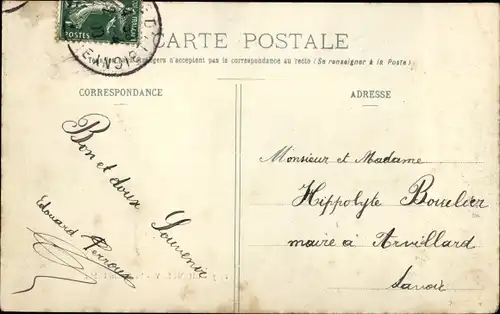 POSTES
CARTE POSTALE
Tous les pays étrangers n'acceptent pas la correspondance au recto (Se renseigner à la Poste)
CORRESPONDANCE
ADRESSE
Bon et doux
Souvenir
Edouard Perroux
Monsieur et Madame
Hippolyte
maire à Arvillard
Savoie